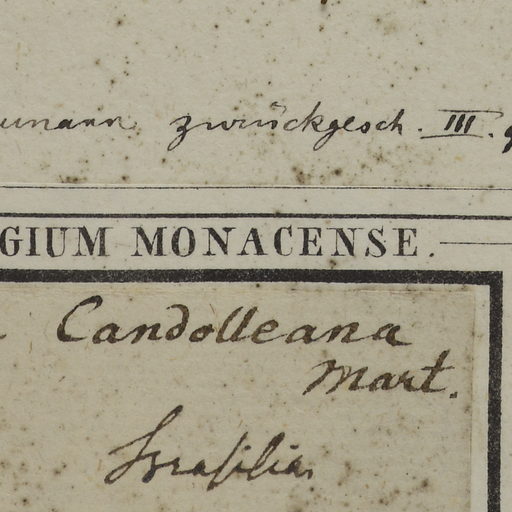 zurückgesch. III.
GIUM MONACENSE.
Candolleana
Mart.
Brasilia